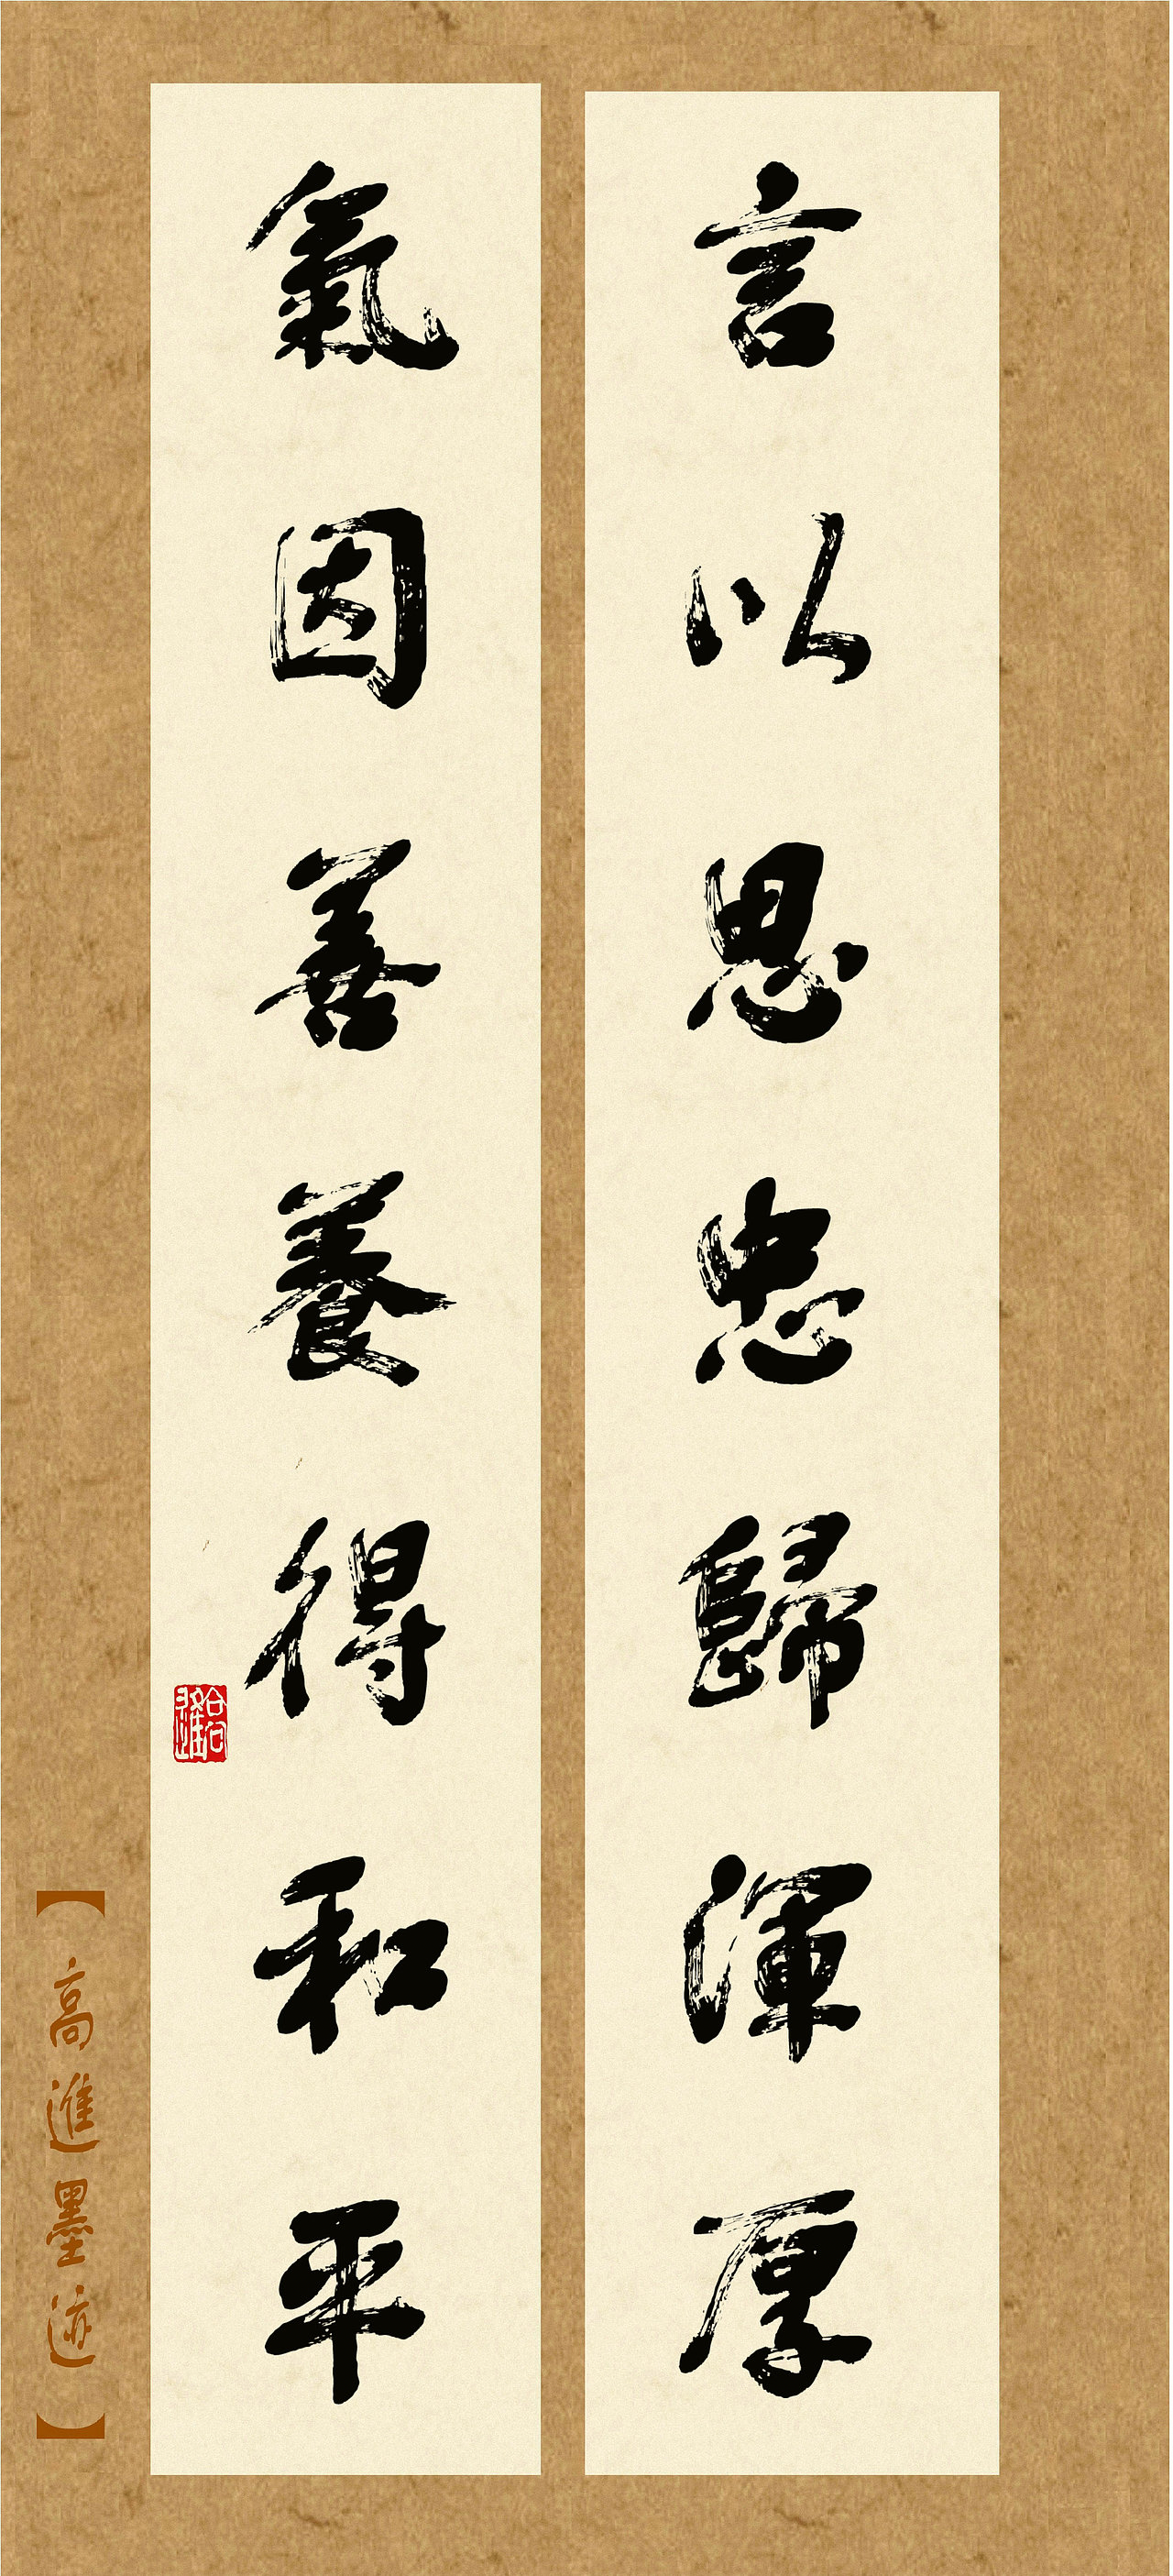 言以思忠歸渾厚
氣因善養得和平
【高進墨迹】